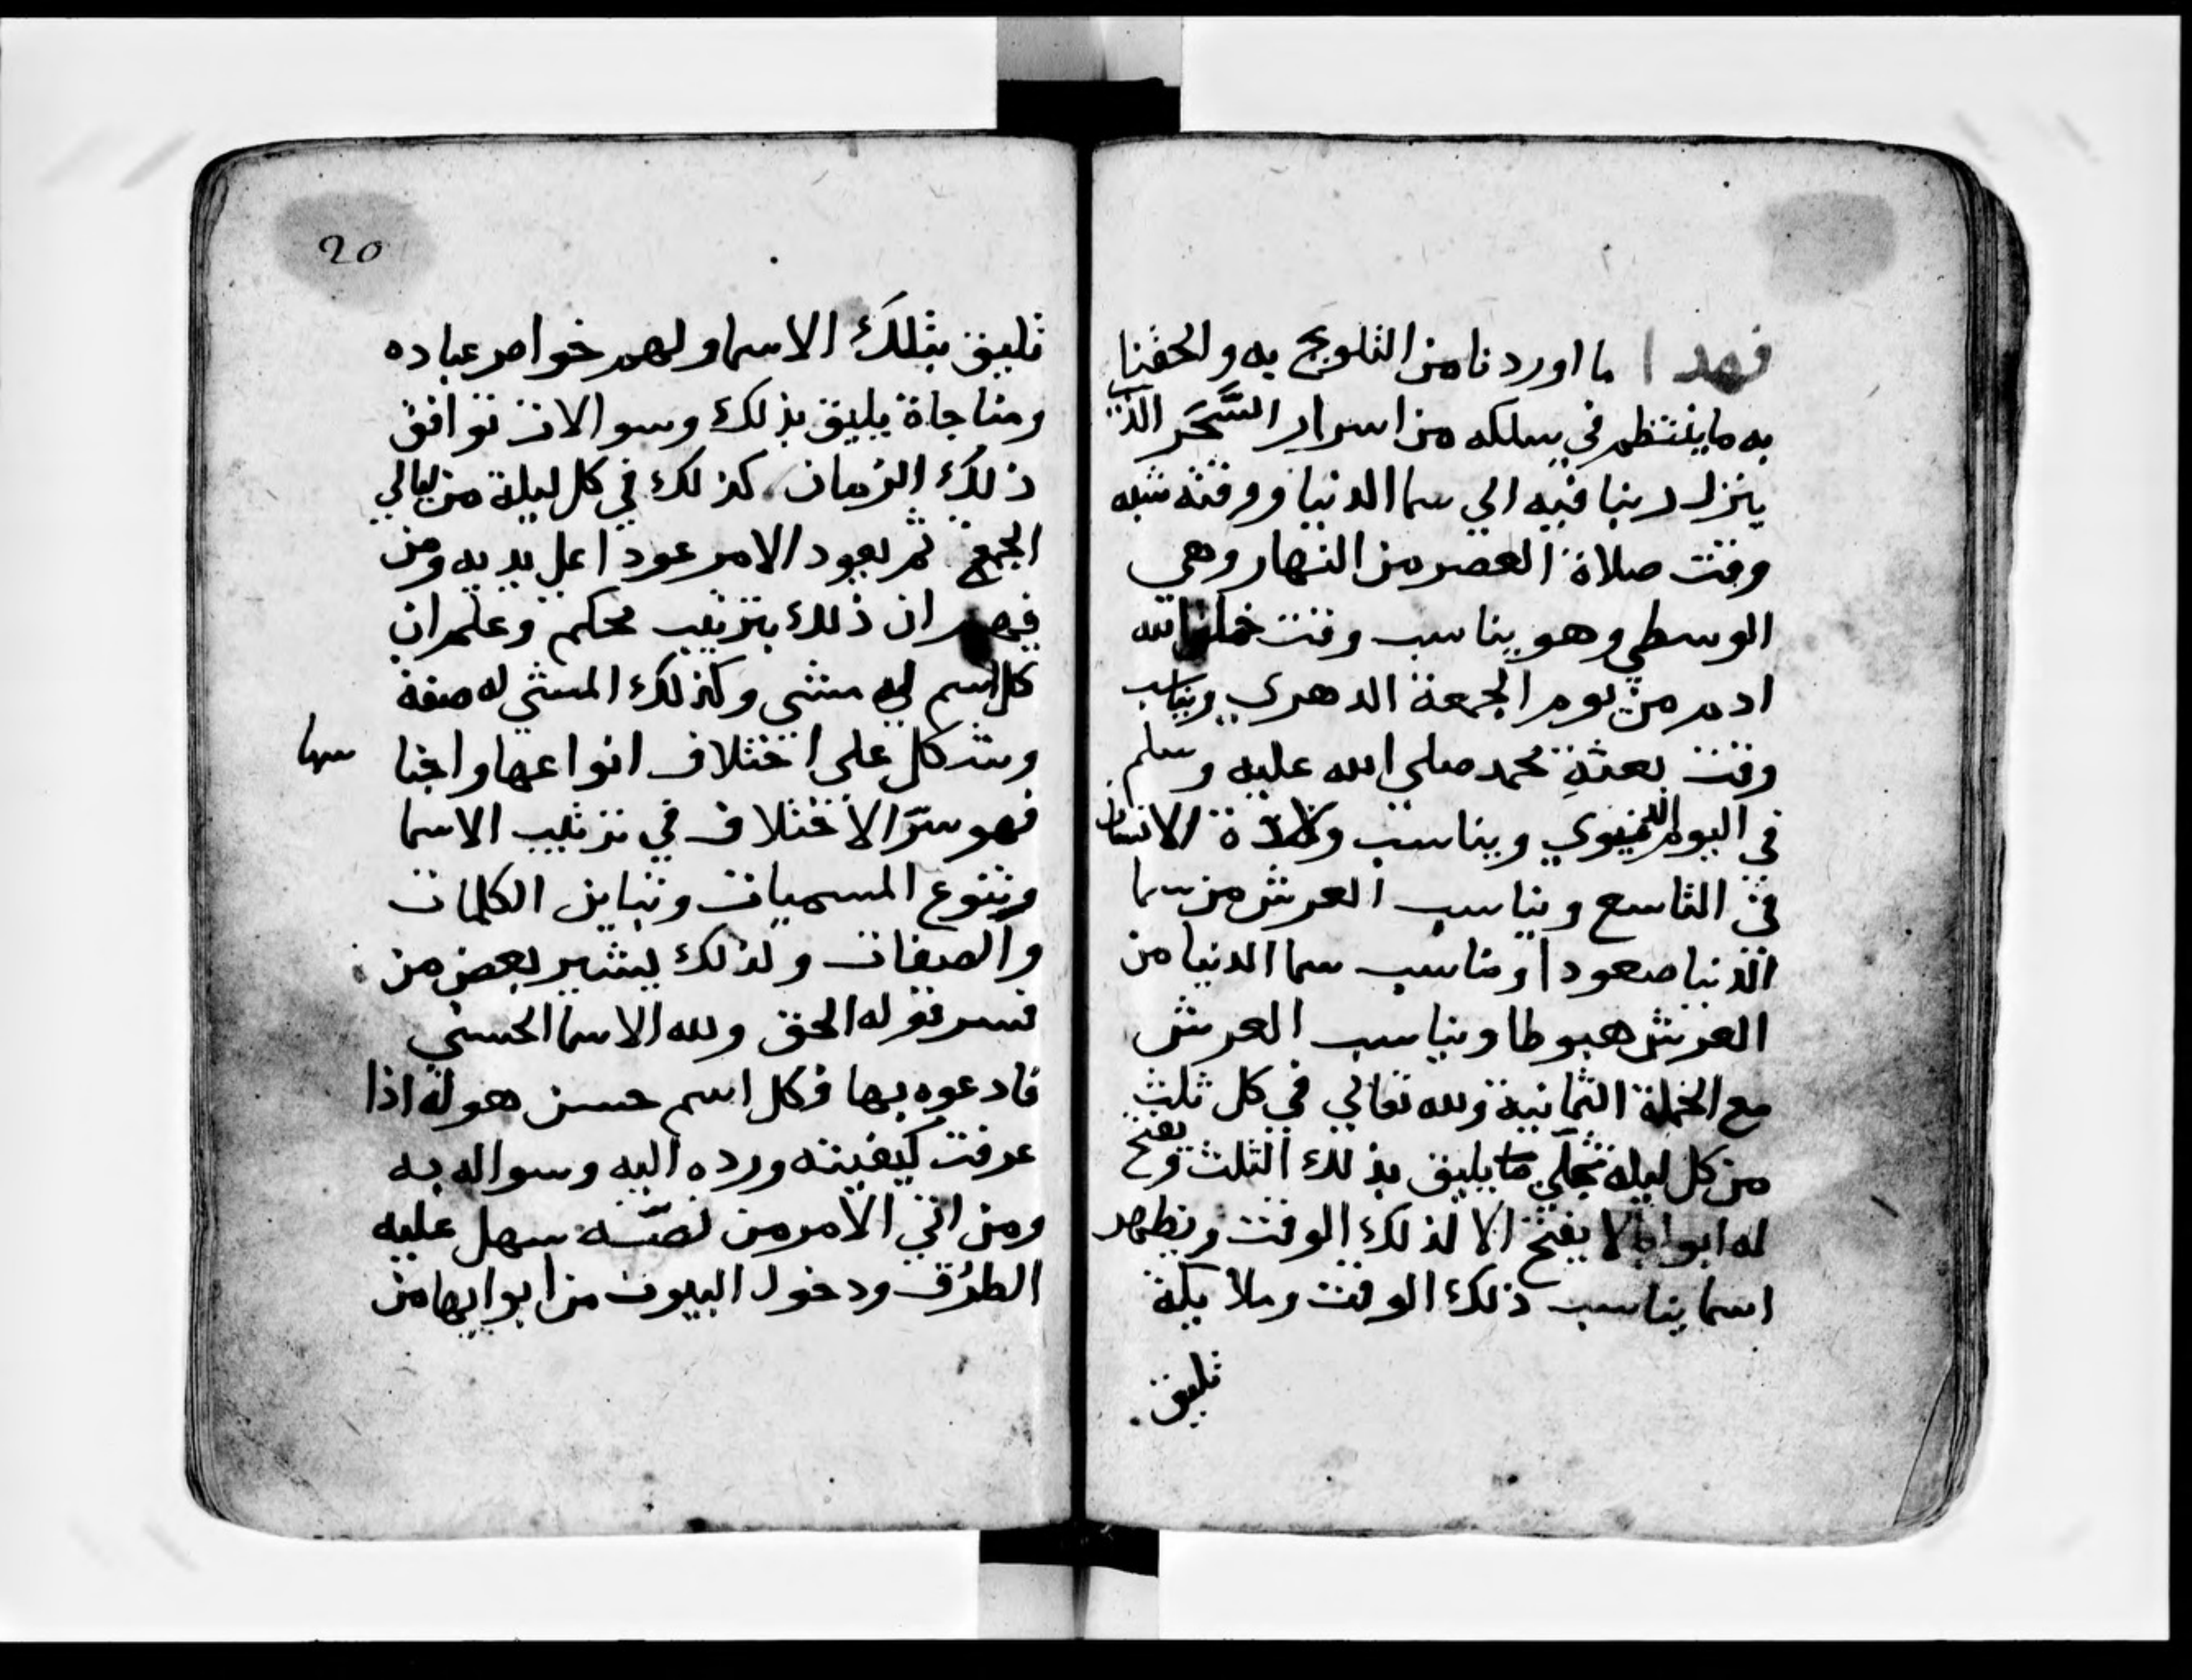 فهذا ما اوردنا من التلويح به والحقنا
به ما ينتظم في سلكه من اسرار السَّحَر الذي
ينزل ربنا فيه الي سما الدنيا ووقته شبه
وقت صلاة العصر من النهار وهي
الوسطي وهو يناسب وقت خلق الله
ادم من يوم الجمعة الدهري ويناسب
وقت بعثةِ محمد صلي الله عليه وسلم
في اليوم الدنيوي ويناسب ولادة الانسان
في التاسع ويناسب العرش من سما
الدنيا صعودا ومناسب سما الدنيا من
العرش هبوطا ويناسب العرش
مع الحملة الثمانية ولله تعالي في كل ثلث
من كل ليلة تجلّي ما يليق بذلك الثلث ويفتح
له ابوابا لا يفتح الا لذلك الوقت ويظهر
اسما يناسب ذلك الوقت وملايكة
تليق
20
تليق بتلكَ الاسما ولهم خواص عباده
ومناجاة يليق بذلك وسوالات توافق
ذلك الزمان كذلك في كل ليلة من ليالي
الجمع ثم يعود الامر عودا علي بديه ومن
فهم ان ذلك بترتيب محكم وعلم ان
كل اسم له مسمي وكذلك المسمي له صفة
وسر كل علي اختلاف انواعها واجنا سها
فهو سرّ الاختلاف في ترتيب الاسما
وتنوع المسميات وتباين الكلمات
والصفات ولذلك يشير بعض من
فسر قوله الحق ولله الاسما الحسني
فادعوه بها فكل اسم حسن هو له اذا
عرفت كيفيته ورده اليه وسواله به
ومن اتي الامر من نصّه سهل عليه
الطرُق ودخول البيوت من ابوابها من